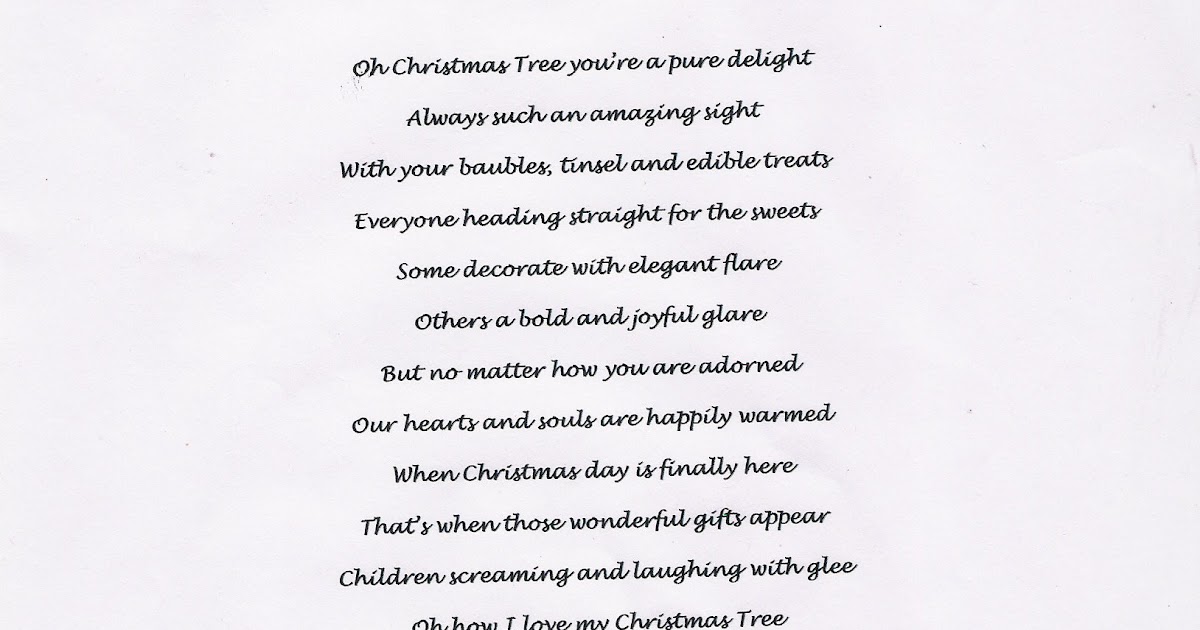 Oh Christmas Tree you're a pure delight
Always such an amazing sight
With your baubles, tinsel and edible treats
Everyone heading straight for the sweets
Some decorate with elegant flare
Others a bold and joyful glare
But no matter how you are adorned
Our hearts and souls are happily warmed
When Christmas day is finally here
That's when those wonderful gifts appear
Children screaming and laughing with glee
Oh how I love my Christmas Tree